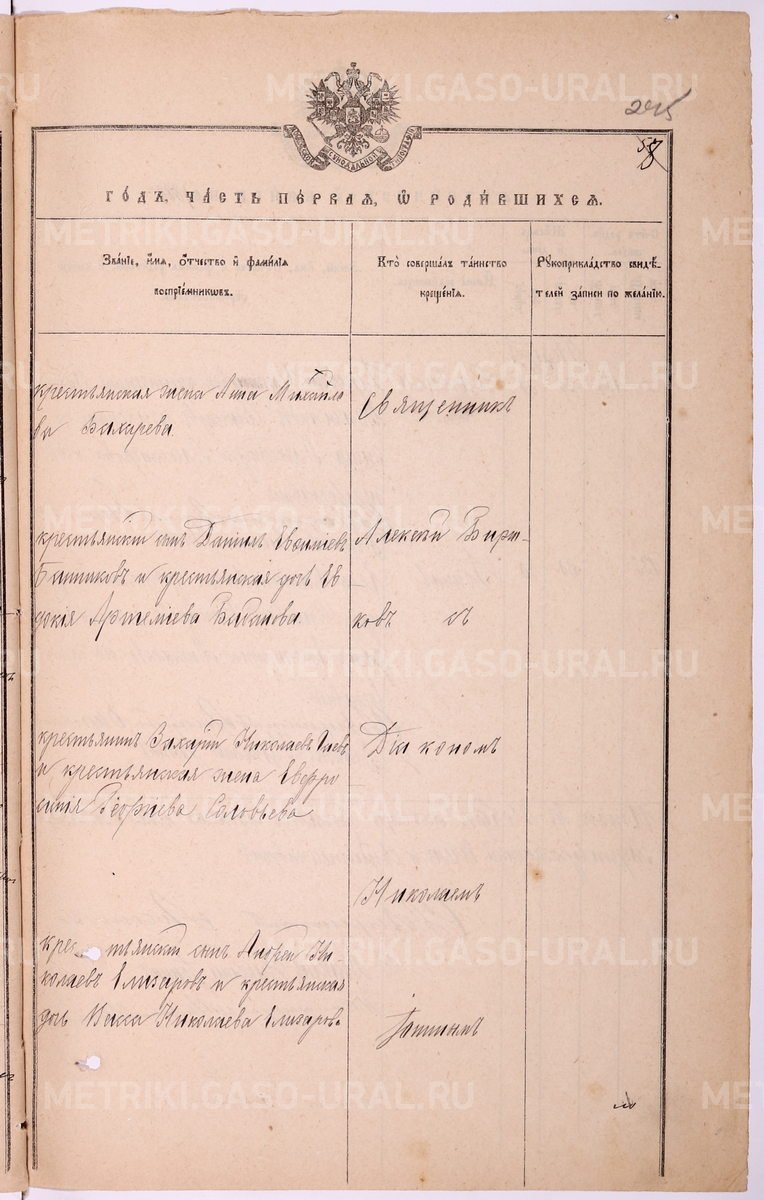 METRIKI.GASO-URAL.RU
245
58
ГОДЪ, ЧАСТЬ ПЕРВАЯ, Ѡ РОДИВШИХСЯ.
Званіе, имя, отчество и фамилія воспріемниковъ.
Кто совершалъ таинство крещенія.
Рукоприкладство свидѣтелей записи по желанію.
крестьянская жена Анна Михайло
ва Бахарева
Священникъ
крестьянскій сынъ Даніилъ
Банниковъ и крестьянская дочь Ев
докія Артеміева Бабанова
Алексѣй Бирю-
ковъ съ
крестьянинъ Захарій Николаевъ
и крестьянская жена Евфро
синія Георгіева Соловьева
Діакономъ
Николаемъ
крестьянскій сынъ Андрей Ни-
колаевъ Елизаровъ и крестьянская
дочь Васса Николаева Елизарова
METRIKI.GASO-URAL.RU